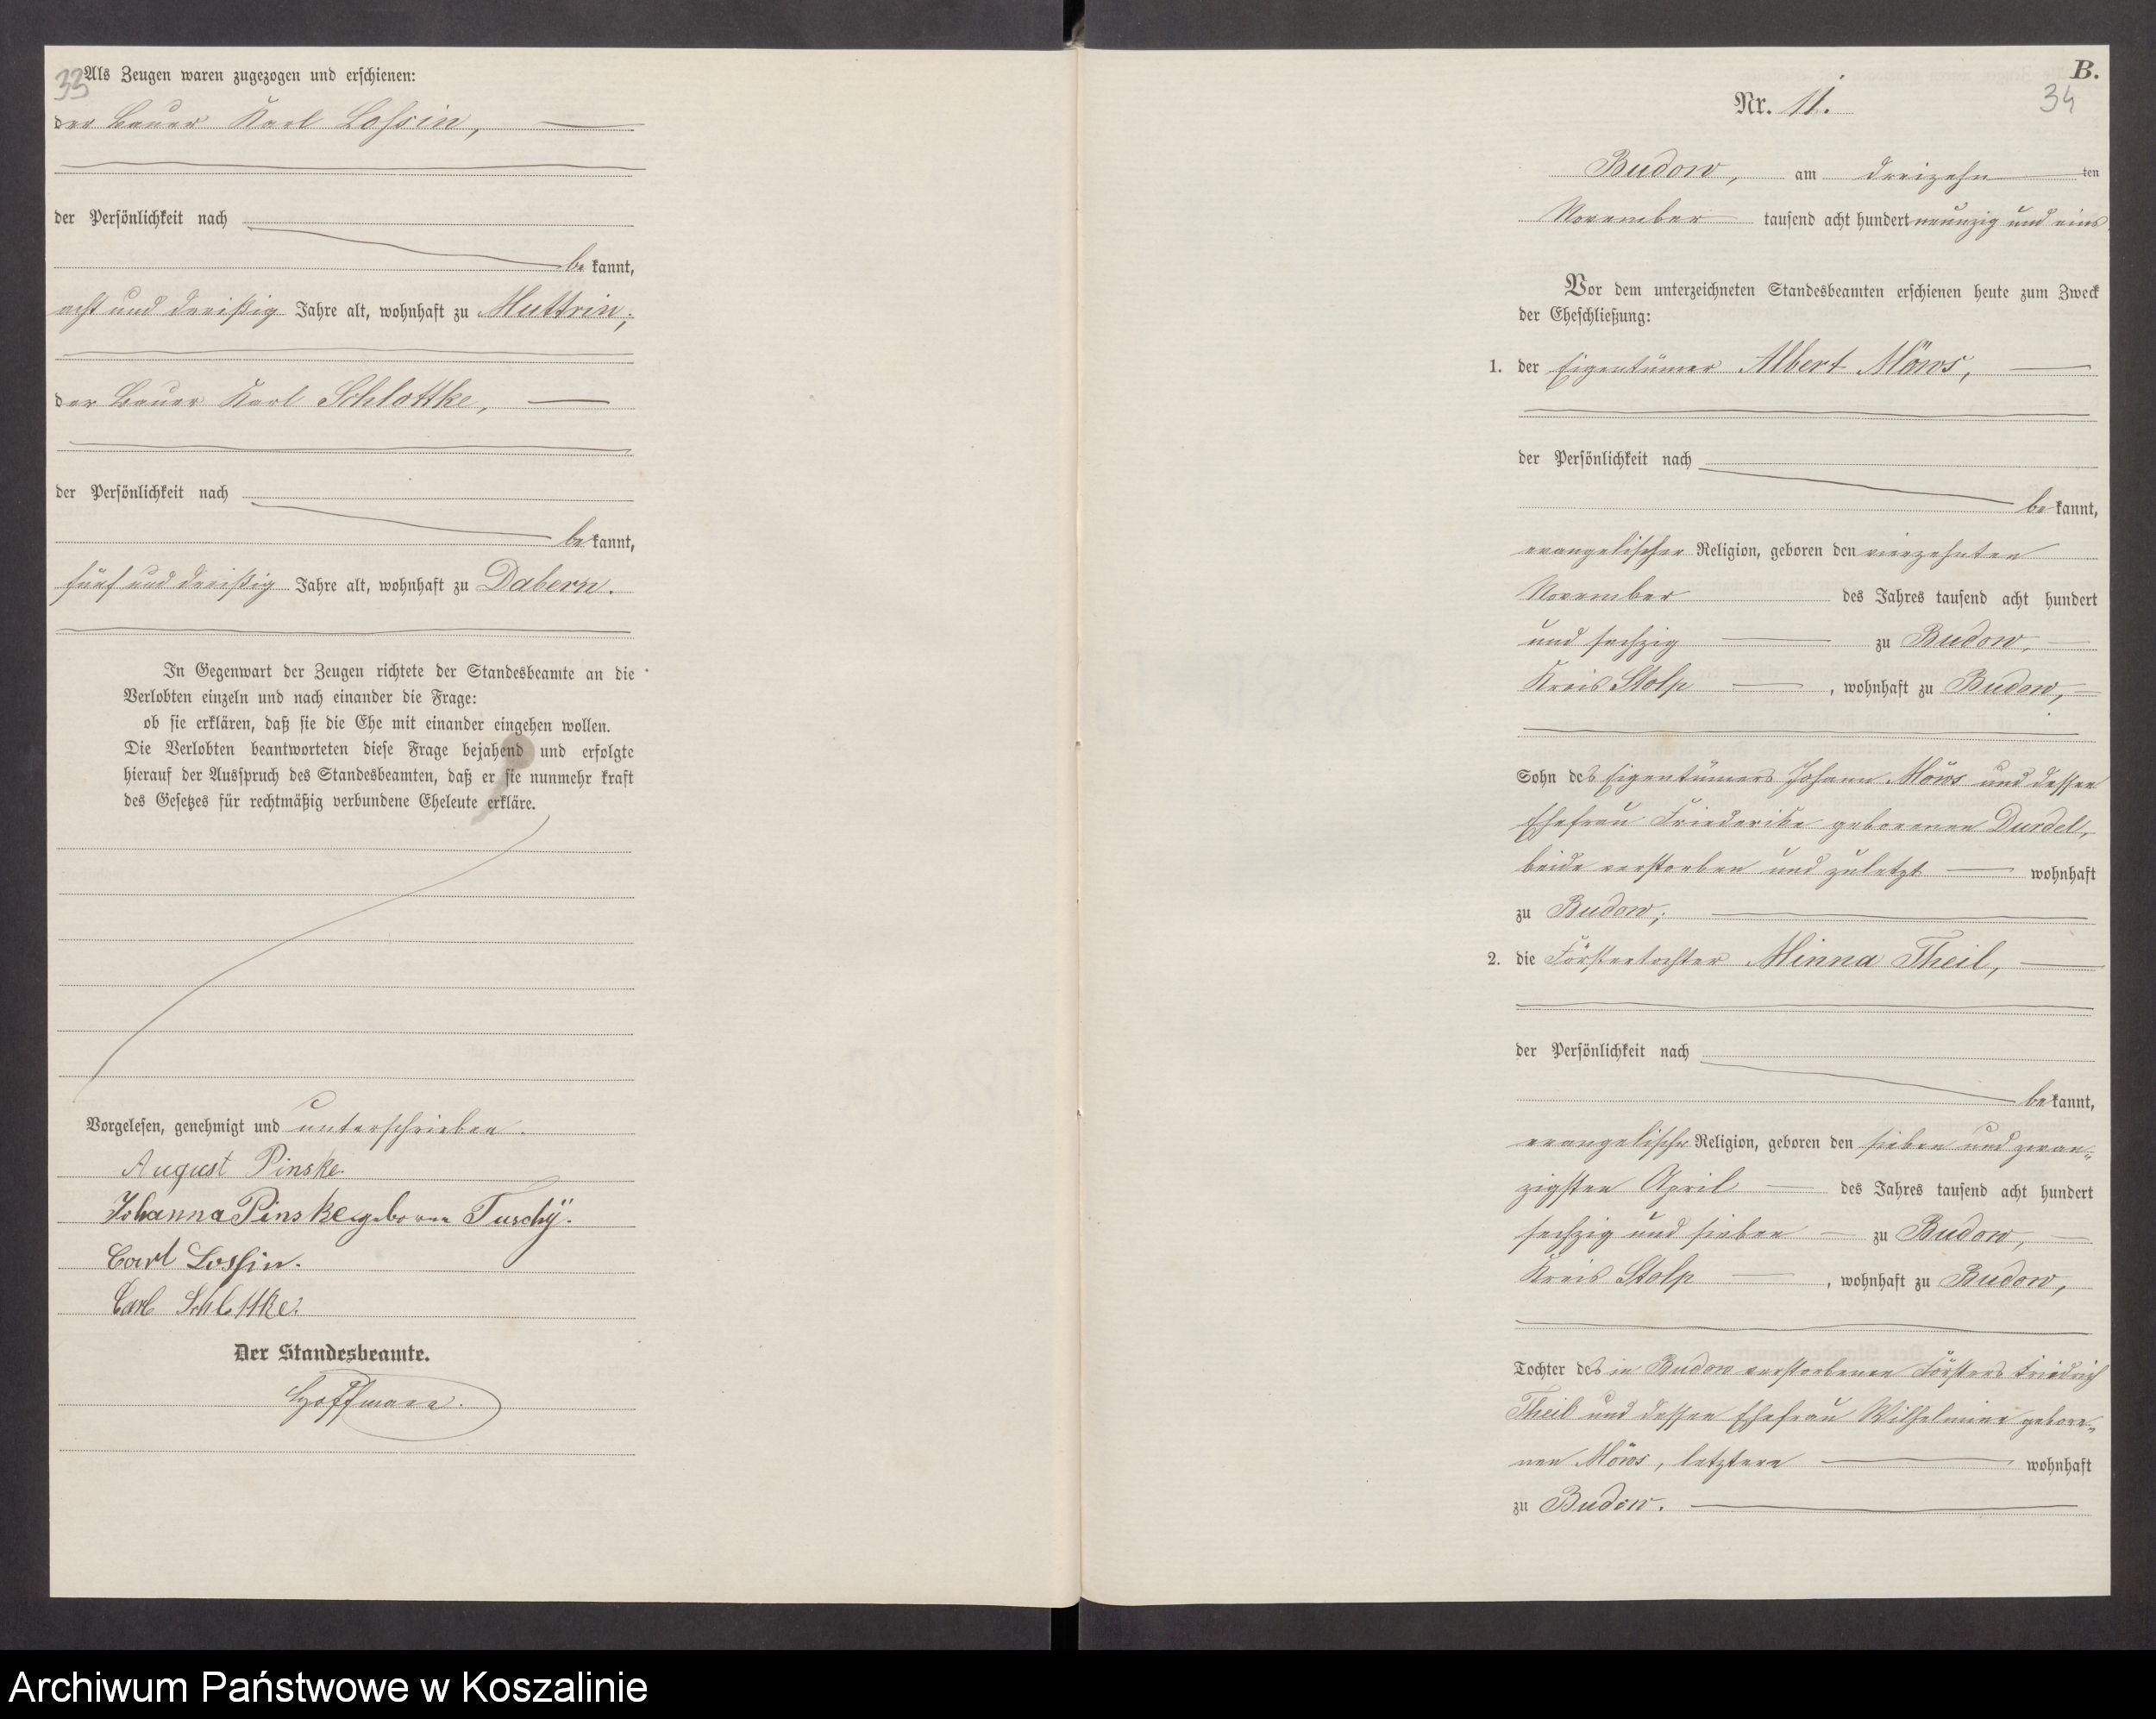 33
Als Zeugen waren zugezogen und erschienen:
der Bauer Karl Lossin,
der Persönlichkeit nach
be kannt,
acht und dreißig Jahre alt, wohnhaft zu Muttrin;
der Bauer Karl Schlottke,
der Persönlichkeit nach
be kannt,
fünf und dreißig Jahre alt, wohnhaft zu Dabern.
In Gegenwart der Zeugen richtete der Standesbeamte an die
Verlobten einzeln und nach einander die Frage:
ob sie erklären, daß sie die Ehe mit einander eingehen wollen.
Die Verlobten beantworteten diese Frage bejahend und erfolgte
hierauf der Ausspruch des Standesbeamten, daß er sie nunmehr kraft
des Gesetzes für rechtmäßig verbundene Eheleute erkläre.
Vorgelesen, genehmigt und unterschrieben.
August Pinske.
Johanna Pinske geboren Tuschÿ.
Carl Lossin.
Carl Schlottke.
Der Standesbeamte.
Hoffmann.
B.
34
Nr. 11.
Budow, am dreizehn ten
November tausend acht hundert neunzig und eins
Vor dem unterzeichneten Standesbeamten erschienen heute zum Zweck
der Eheschließung:
1. der Eigentümer Albert Möws,
der Persönlichkeit nach
be kannt,
evangelischer Religion, geboren den vierzehnten
November des Jahres tausend acht hundert
und sechzig zu Budow,
Kreis Stolp , wohnhaft zu Budow,
Sohn des Eigentümers Johann Möws und dessen
Ehefrau Friederike geborenen Durdel,
beide verstorben und zuletzt wohnhaft
zu Budow;
2. die Försterтochter Minna Theil,
der Persönlichkeit nach
be kannt,
evangelischer Religion, geboren den sieben und zwan-
zigsten April des Jahres tausend acht hundert
sechzig und sieben zu Budow,
Kreis Stolp , wohnhaft zu Budow,
Tochter des in Budow verstorbenen Försters Friedrich
Theil und dessen Ehefrau Wilhelmine gebore-
nen Möws, letztere wohnhaft
zu Budow.
Archiwum Państwowe w Koszalinie